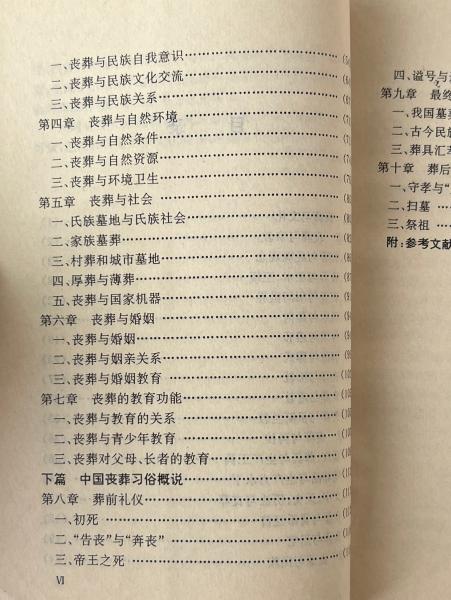 一、丧葬与民族自我意识
二、丧葬与民族文化交流
三、丧葬与民族关系
第四章 丧葬与自然环境
一、丧葬与自然条件
二、丧葬与自然资源
三、丧葬与环境卫生
第五章 丧葬与社会
一、氏族墓地与氏族社会
二、家族墓葬
三、村葬和城市墓地
四、厚葬与薄葬
五、丧葬与国家机器
第六章 丧葬与婚姻
一、丧葬与婚姻
二、丧葬与姻亲关系
三、丧葬与婚姻教育
第七章 丧葬的教育功能
一、丧葬与教育的关系
二、丧葬与青少年教育
三、丧葬对父母、长者的教育
下篇 中国丧葬习俗概说
第八章 葬前礼仪
一、初死
二、“告丧”与“奔丧”
三、帝王之死
Ⅵ
四、谥号与
第九章 最终
一、我国墓
二、古今民族
三、葬具汇
第十章 葬后
一、守孝与“
二、扫墓
三、祭祖
附：参考文献